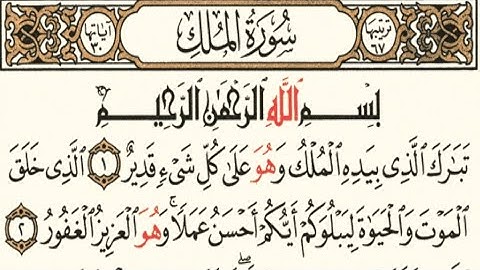 ترتيبها ٦٧ سُورَةُ المُلْكِ آياتها ٣٠
بِسْمِ ٱللَّهِ ٱلرَّحْمَٰنِ ٱلرَّحِيمِ
تَبَٰرَكَ ٱلَّذِى بِيَدِهِ ٱلْمُلْكُ وَهُوَ عَلَىٰ كُلِّ شَىْءٍ قَدِيرٌ ١ ٱلَّذِى خَلَقَ
ٱلْمَوْتَ وَٱلْحَيَوٰةَ لِيَبْلُوَكُمْ أَيُّكُمْ أَحْسَنُ عَمَلًا ۚ وَهُوَ ٱلْعَزِيزُ ٱلْغَفُورُ ٢